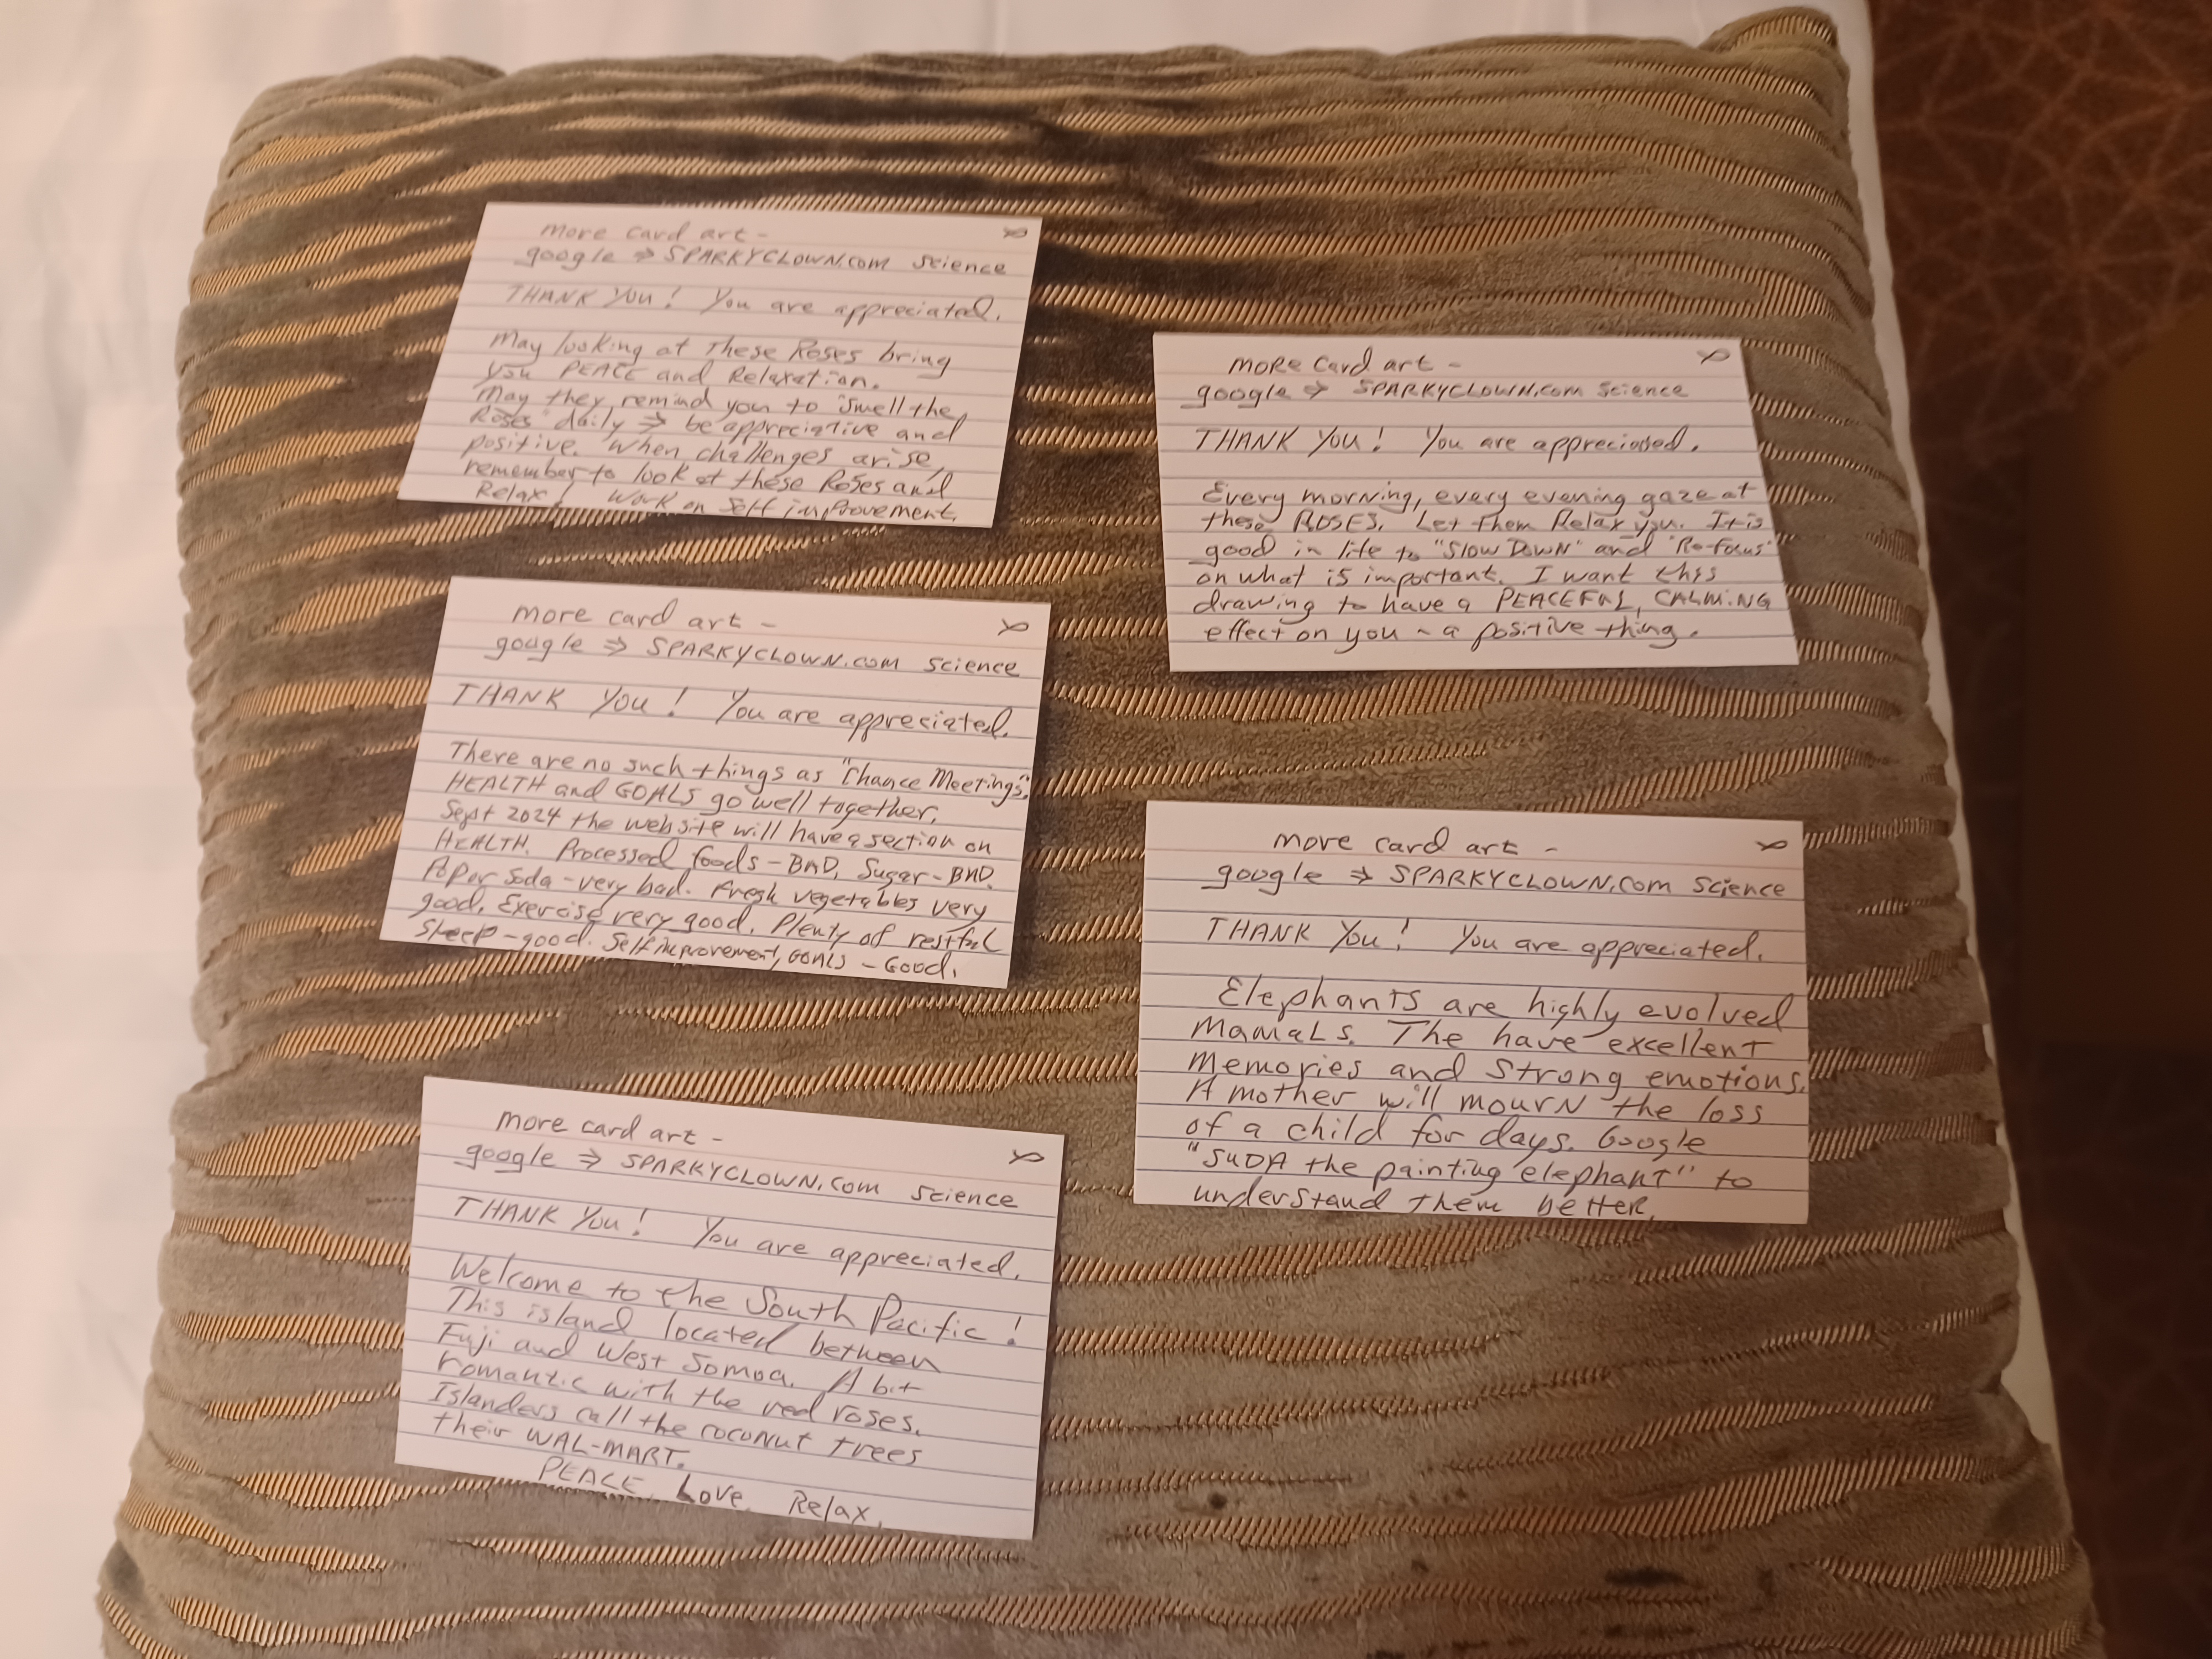 more card art -
google ⇒ SPARKYCLOWN.com science
THANK YOU! You are appreciated.
May looking at These Roses bring
you PEACE and Relaxation.
May they remind you to "Smell the
Roses" daily ⇒ be appreciative and
positive. When challenges arise,
remember to look at these Roses and
Relax! Work on Self improvement.
more card art -
google ⇒ SPARKYCLOWN.com science
THANK YOU! You are appreciated.
There are no such things as "Chance Meetings".
HEALTH and GOALS go well together.
Sept 2024 the website will have a section on
HEALTH. Processed foods - BAD, Sugar - BAD.
Pop or Soda - very bad. Fresh vegetables very
good. Exercise very good. Plenty of restful
Sleep - good. Self improvement, GOALS - Good.
more card art -
google ⇒ SPARKYCLOWN.com science
THANK YOU! You are appreciated.
Welcome to the South Pacific!
This island located between
Fuji and West Somoa. A bit
romantic with the red roses.
Islanders call the coconut trees
their WAL-MART.
PEACE, Love, Relax.
more card art -
google ⇒ SPARKYCLOWN.com science
THANK YOU! You are appreciated.
Every morning, every evening gaze at
these ROSES. Let them Relax you. It is
good in life to "SLOW DOWN" and "Re-focus"
on what is important. I want this
drawing to have a PEACEFUL, CALMING
effect on you - a positive thing.
more card art -
google ⇒ SPARKYCLOWN.com science
THANK YOU! You are appreciated.
Elephants are highly evolved
Mamals. The have excellent
memories and strong emotions.
A mother will mourn the loss
of a child for days. Google
"SUDA the painting elephant" to
understand them better.